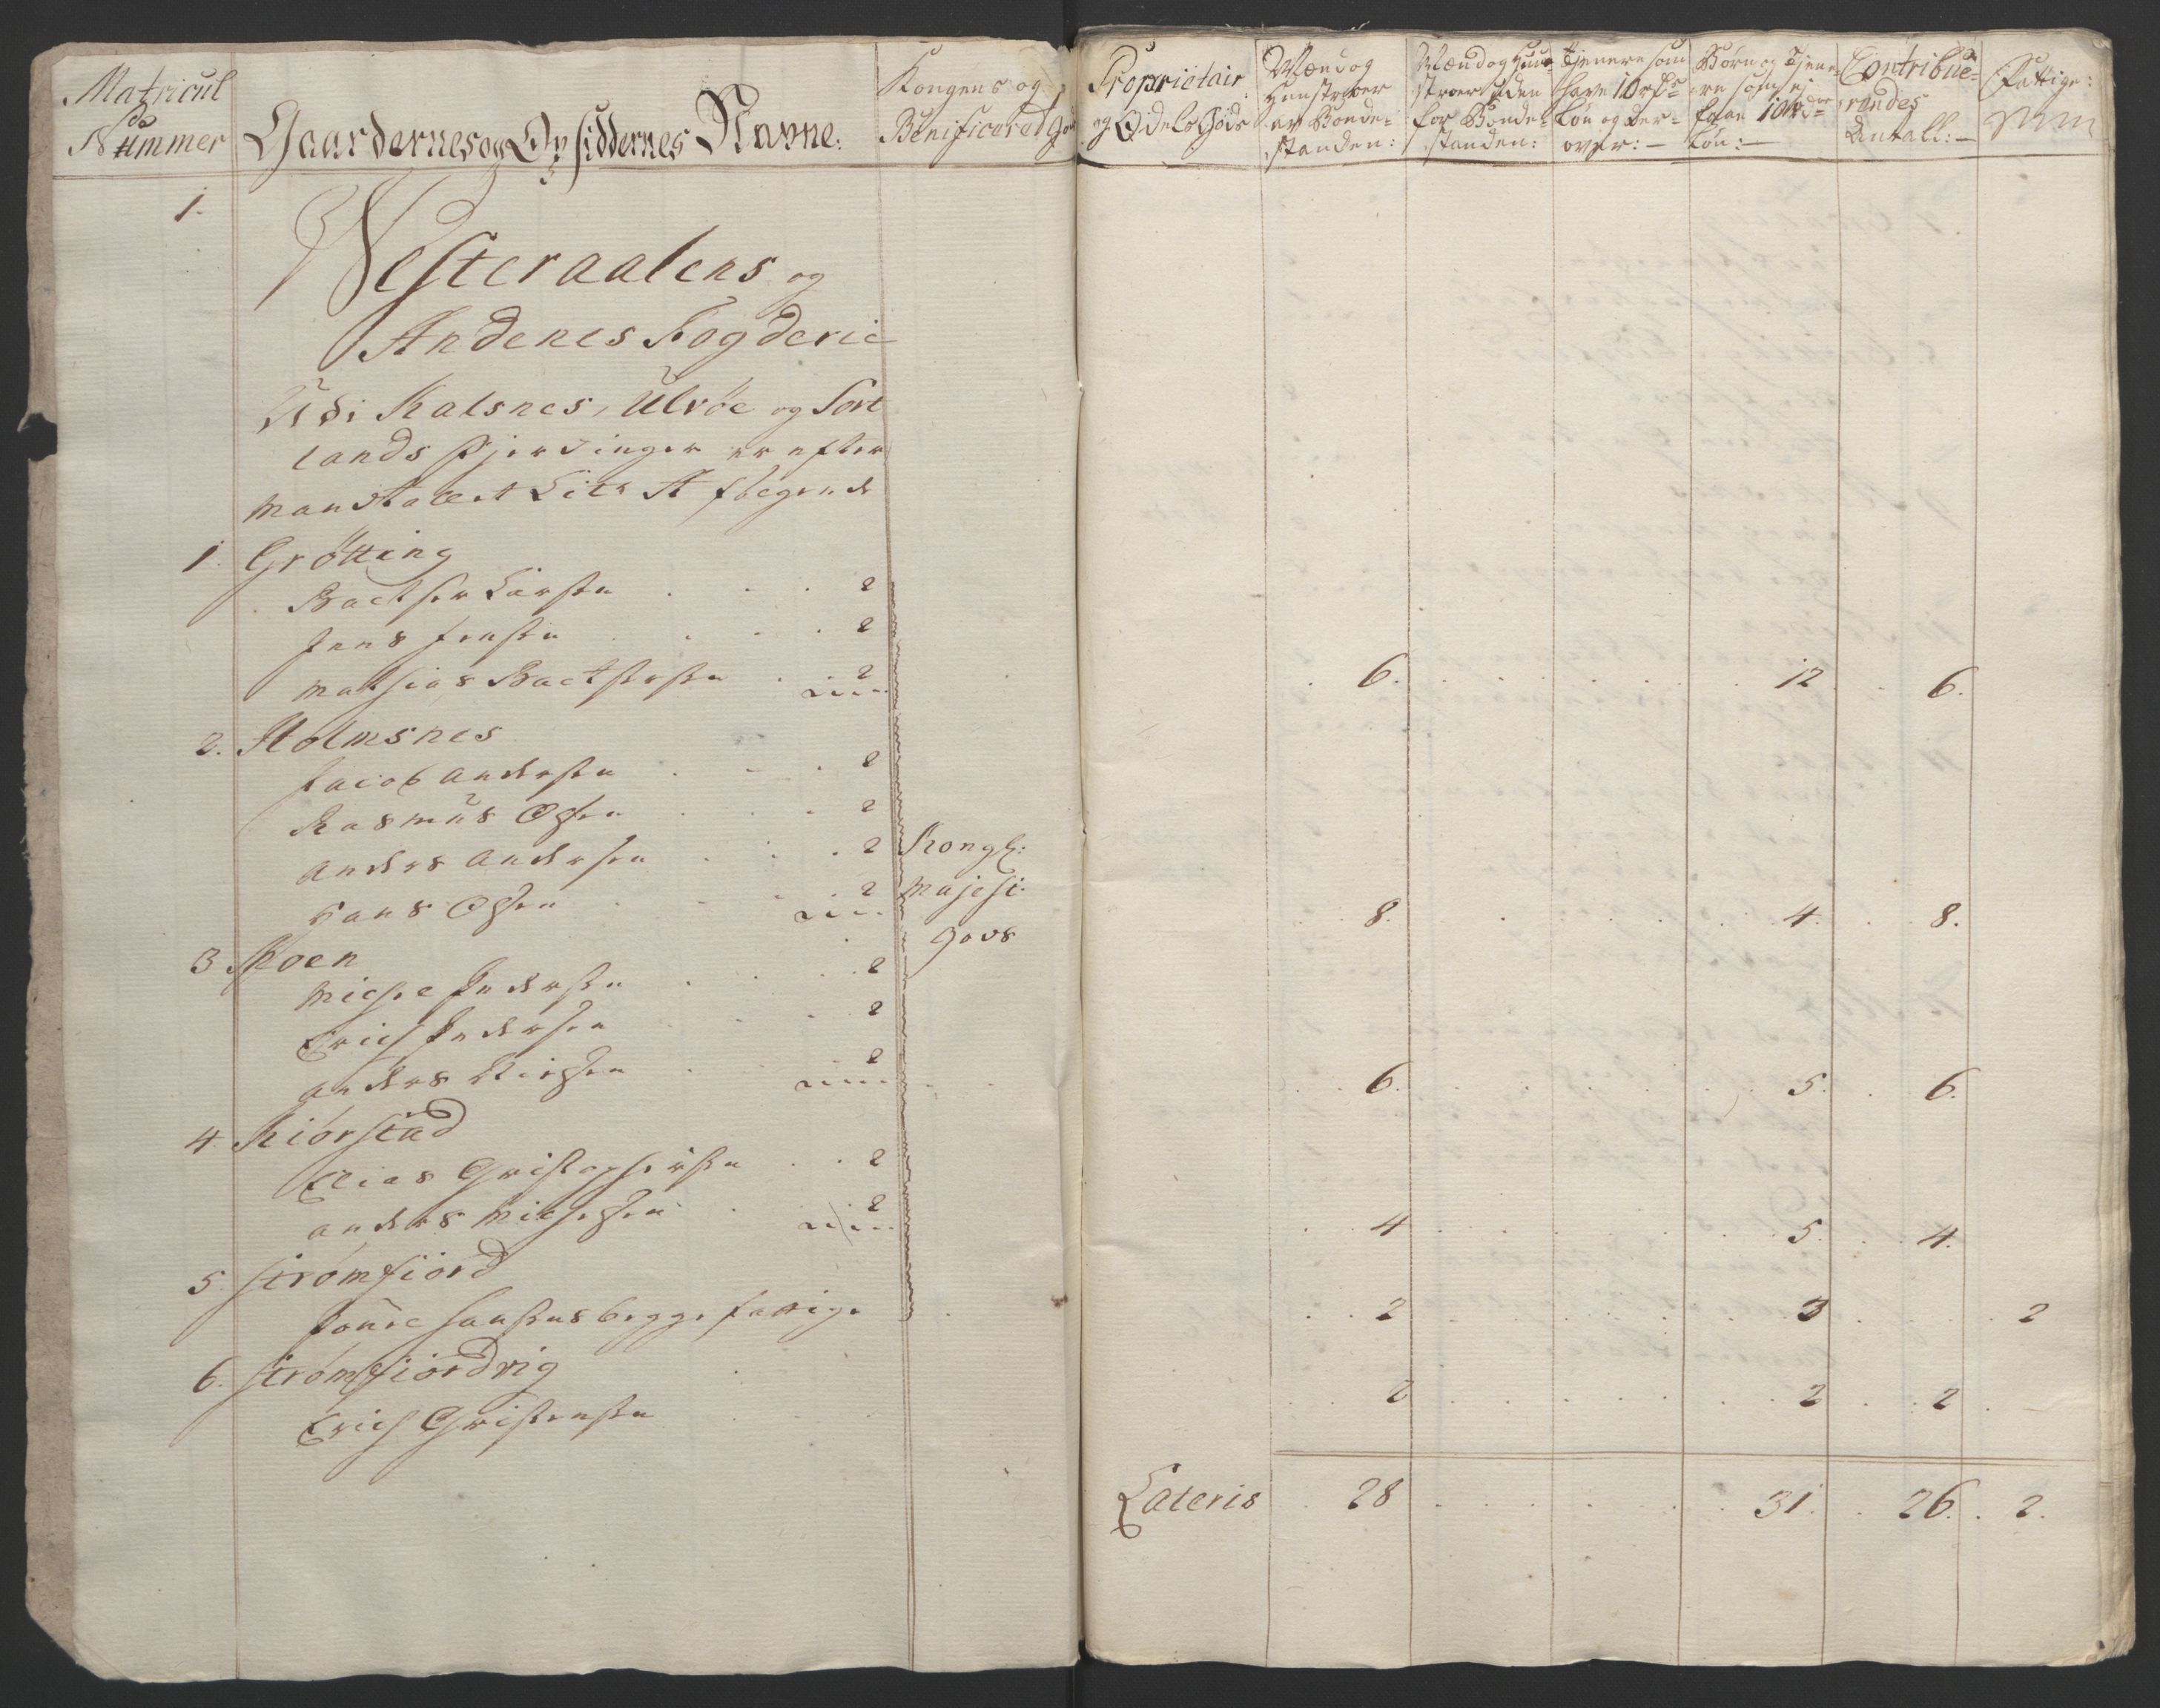 Matricul
Nummer
Gaardernes og Opsiddernes Navne:
Kongens og
Benificeret God
Proprietair
og Odels Gods
Mænd og
Hustroer
av Bonde-
standen:
Mænd og Hus-
stroer uden
for Bonde-
standen:
Tjenere som
have 10 rdr
Løn og der-
over:
Børn og Tjene-
re som ei
faar 10 rdr
Løn:
Contribue-
rendes
Antall:
Fattige:
1.
Westeraalens og
Andenes Fogderie
Udi Kalsnes, Ulvøe og Sort
lands Fjerdinger er efter
Mandtallet Litr A følgende
1. Grøtting
Baltser Larsen . . . 2
Jens Jensen . . . 2
Mathias Baltsersen . . 2 6. 12 6.
2. Holmsnes
Jacob Andersen . . . 2
Rasmus Olsen . . . 2
Anders Andersen . . . 2 Kongl:
Hans Olsen . . . 2 Majest: 8. 4. 8.
Gods
3 Moen
Michel Pedersen . . . 2
Erich Pedersen . . . 2
Anders Nielsen . . . 2 6. 5. 6.
4. Kiørstad
Elias Christophersen . . 2
Anders Michelsen . . 2 4 5. 4.
5 Strømfiord
Povel Hansens begge fattige 2 3 2
6. Strømfiordvig
Erich Christensen 2 2 2
Lateris 28 31. 26. 2.